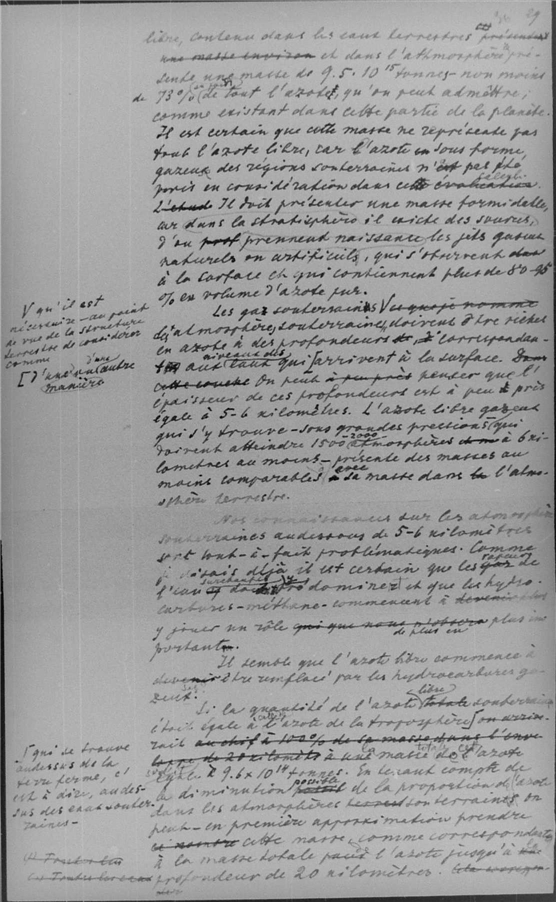 29
libre, contenu dans les eaux terrestres
une masse environ et dans l'athmosphère pré-
sente une masse de 9.5.10 15 tonnes - non moins
de 73% de tout l'azote, qu'on peut admettre,
comme existant dans cette partie de la planète.
Il est certain que cette masse ne représente pas
tout l'azote libre, car l'azote en sous forme
gazeux des régions souterraines n'est pas été
pris en considération dans cette
L'étude Il doit présenter une masse formidable,
car dans la stratisphère il existe des sources,
d'où prennent naissance les jets gazeux
naturels ou artificiels, qui s'observent
à la surface et qui contiennent plus de 80-95
% en volume d'azote pur.
Les gaz souterrains
des atmosphères souterraines, doivent être riches
en azote à des profondeurs correspondan-
niveaux des
aux eaux qui arrivent à la surface.
cette couche On peut à peu près penser que l'
épaisseur de ces profondeurs est à peu près
égale à 5-6 kilomètres. L'azote libre gazeux
qui s'y trouve - sous grandes pressions, qui
doivent atteindre 1500-2000 atmosphères à 6 ki-
lomètres au moins - présente des masses au
moins comparables avec sa masse dans l'atmo-
sphère terrestre.
V qu'il est
nécessaire - au point
de vue de la structure
terrestre de considérer
comme
[D'une autre
manière
Nos connaissances sur les atmosphères
souterraines audessous de 5-6 kilomètres
sont tout-à-fait problématiques. Comme
je disais déjà il est certain que les gaz de
vapeurs
l'eau
surchauffée
dominent et que les hydro-
carbures - méthane - commencent à
y jouer un rôle plus im
de plus en
portant.
Il semble que l'azote libre commence à
devenir être remplacé par les hydrocarbures ga-
zeux.
Si la quantité de l'azote libre souterrain
était égale à l'azote de la troposphère, on arrive-
rait à 100% de sa masse dans l'enve-
loppe de 20 kilomètres à une masse totale de l'azote
égale à 9.6 x 10 tonnes. En tenant compte de
la diminution possible de la proportion de l'azote
dans les atmosphères souterraines on
peut - en première approximation prendre
ce nombre cette masse, comme correspondante
à la masse totale l'azote jusqu'à
profondeur de 20 kilomètres.
qui se trouve
audessus de la
terre ferme, c'
est à dire, audes-
sus des eaux souter-
raines -